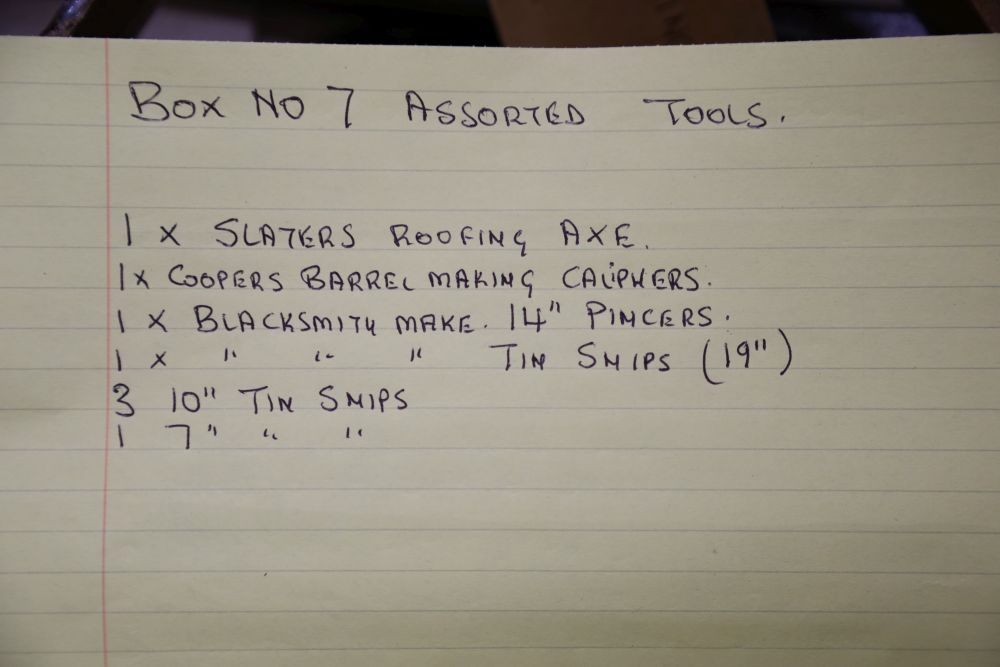 BOX NO 7 ASSORTED TOOLS.
1 X SLATERS ROOFING AXE.
1 X COOPERS BARREL MAKING CALIPHERS.
1 X BLACKSMITH MAKE. 14" PINCERS.
1 X " " " TIN SNIPS (19")
3 10" TIN SNIPS
1 7" " "